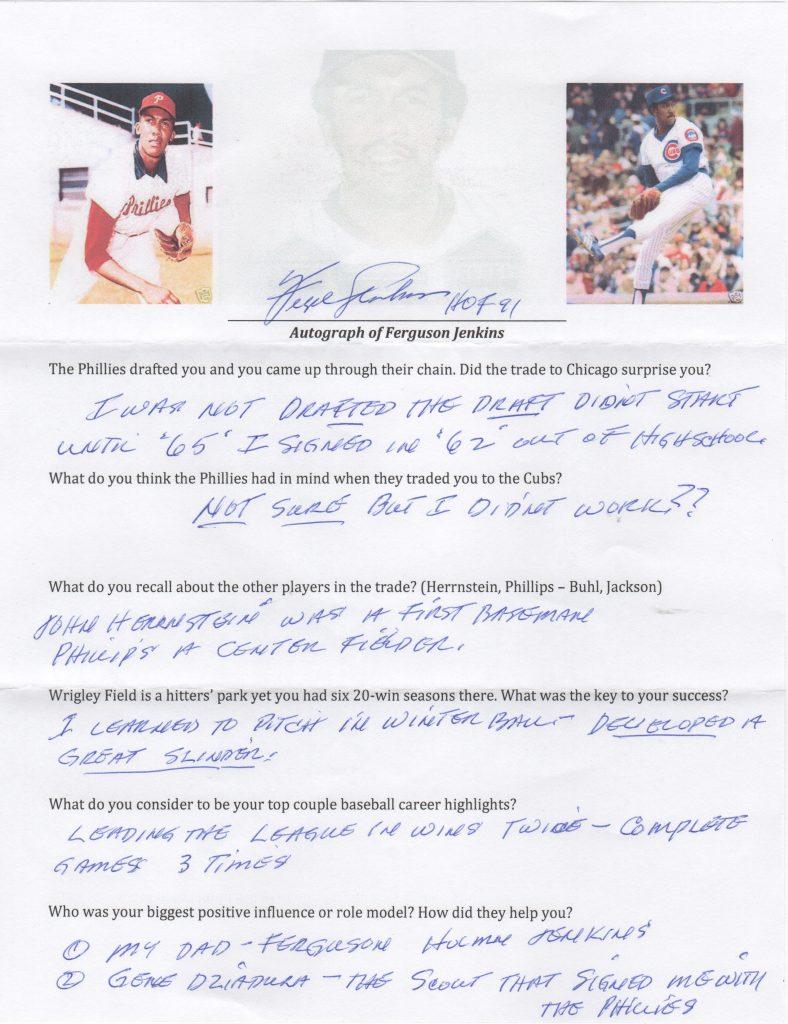 P
Phillies
C
CUBS
Fergie Jenkins HOF 91
Autograph of Ferguson Jenkins
The Phillies drafted you and you came up through their chain. Did the trade to Chicago surprise you?
I WAS NOT DRAFTED THE DRAFT DIDN'T START
UNTIL "65" I SIGNED IN "62" OUT OF HIGHSCHOOL.
What do you think the Phillies had in mind when they traded you to the Cubs?
NOT SURE BUT I DIDN'T WORK??
What do you recall about the other players in the trade? (Herrnstein, Phillips – Buhl, Jackson)
JOHN HERRNSTEIN WAS A FIRST BASEMAN
PHILLIPS A CENTER FIELDER.
Wrigley Field is a hitters' park yet you had six 20-win seasons there. What was the key to your success?
I LEARNED TO PITCH IN WINTER BALL - DEVELOPED A
GREAT SLINDER.
What do you consider to be your top couple baseball career highlights?
LEADING THE LEAGUE IN WINS TWICE - COMPLETE
GAMES 3 TIMES
Who was your biggest positive influence or role model? How did they help you?
① MY DAD - FERGUSON HOLMN JENKINS
② GENE DZIADURA - THE SCOUT THAT SIGNED ME WITH
THE PHILLIES